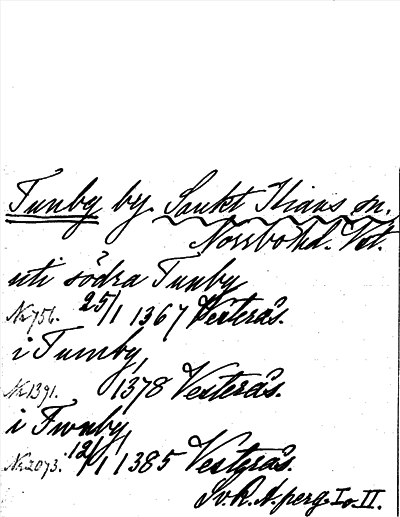 Tunby by. Sankt Ilians sn.
Norrbo hd. Vtl.
uti södra Tunby
Nr 756. 25/1 1367 Vesterås.
i Tumby,
Nr 1391. 1378 Vesterås.
i Twnby,
Nr 2073. 12/1 1385 Vestgrås.
Sv. R. A. perg. I o. II.